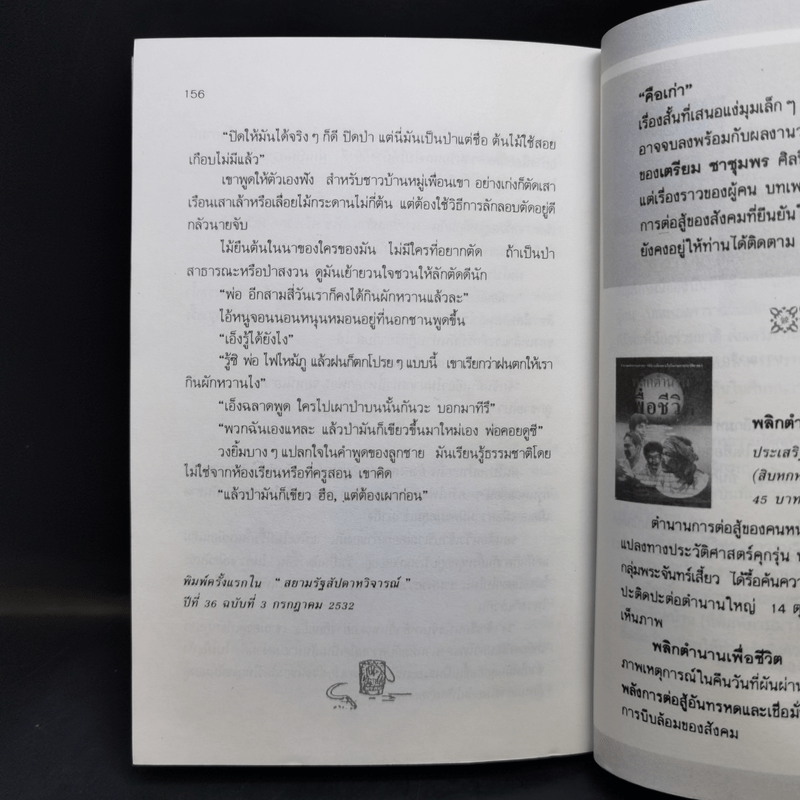 156
“ปิดให้มันได้จริงๆ ก็ดี ปิดป่า แต่นี่มันเป็นป่าแต่ชื่อ ต้นไม้ใช้สอย
เกือบไม่มีแล้ว”
เขาพูดให้ตัวเองฟัง สำหรับชาวบ้านหมู่เพื่อนเขา อย่างเก่งก็ตัดเสา
เรือนเสาเล้าหรือเลื่อยไม้กระดานไม่กี่ต้น แต่ต้องใช้วิธีการลักลอบตัดอยู่ดี
กลัวนายจับ
ไม้ยืนต้นในนาของใครของมัน ไม่มีใครที่อยากตัด ถ้าเป็นป่า
สาธารณะหรือป่าสงวน ดูมันเย้ายวนใจชวนให้ลักตัดดีนัก
“พ่อ อีกสามสี่วันเราก็คงได้กินผักหวานแล้วละ”
ไอ้หนูจอนนอนหนุนหมอนอยู่ที่นอกชานพูดขึ้น
“เอ็งรู้ได้ยังไง”
“รู้ซิ พ่อ ไฟไหม้ภู แล้วฝนก็ตกโปรยๆ แบบนี้ เขาเรียกว่าฝนตกให้เรา
กินผักหวานไง”
“เอ็งฉลาดพูด ใครไปเผาป่าบนนั้นกันวะ บอกมาทีรึ”
“พวกฉันเองแหละ แล้วป่ามันก็เขียวขึ้นมาใหม่เอง พ่อคอยดูซี”
วงยิ้มบางๆ แปลกใจในคำพูดของลูกชาย มันเรียนรู้ธรรมชาติโดย
ไม่ใช่จากห้องเรียนหรือที่ครูสอน เขาคิด
“แล้วป่ามันก็เขียว ฮือ, แต่ต้องเผาก่อน”
พิมพ์ครั้งแรกใน “ สยามรัฐสัปดาหวิจารณ์ ”
ปีที่ 36 ฉบับที่ 3 กรกฎาคม 2532
“คือเก่า”
เรื่องสั้นที่เสนอแง่มุมเล็กๆ
อาจจบลงพร้อมกับผลงาน
ของเตรียม ชาชุมพร
แต่เรื่องราวของผู้คน
การต่อสู้ของสังคมที่ยืนยัน
ยังคงอยู่ให้ท่านได้ติดตาม
เพื่อชีวิต
ประเสริฐ
45 บาท
ตำนานการต่อสู้ของคนหน
แปลงทางประวัติศาสตร์คุกรุ่น
กลุ่มพระจันทร์เสี้ยว ได้รื้อค้นควา
ปะติดปะต่อตำนานใหญ่ 14 ตุ
เห็นภาพ
พลิกตำนานเพื่อชีวิต
ภาพเหตุการณ์ในคืนวันที่ผันผ่าน
พลังการต่อสู้อันทรหดและเชื่อมั่
การบีบล้อมของสังคม